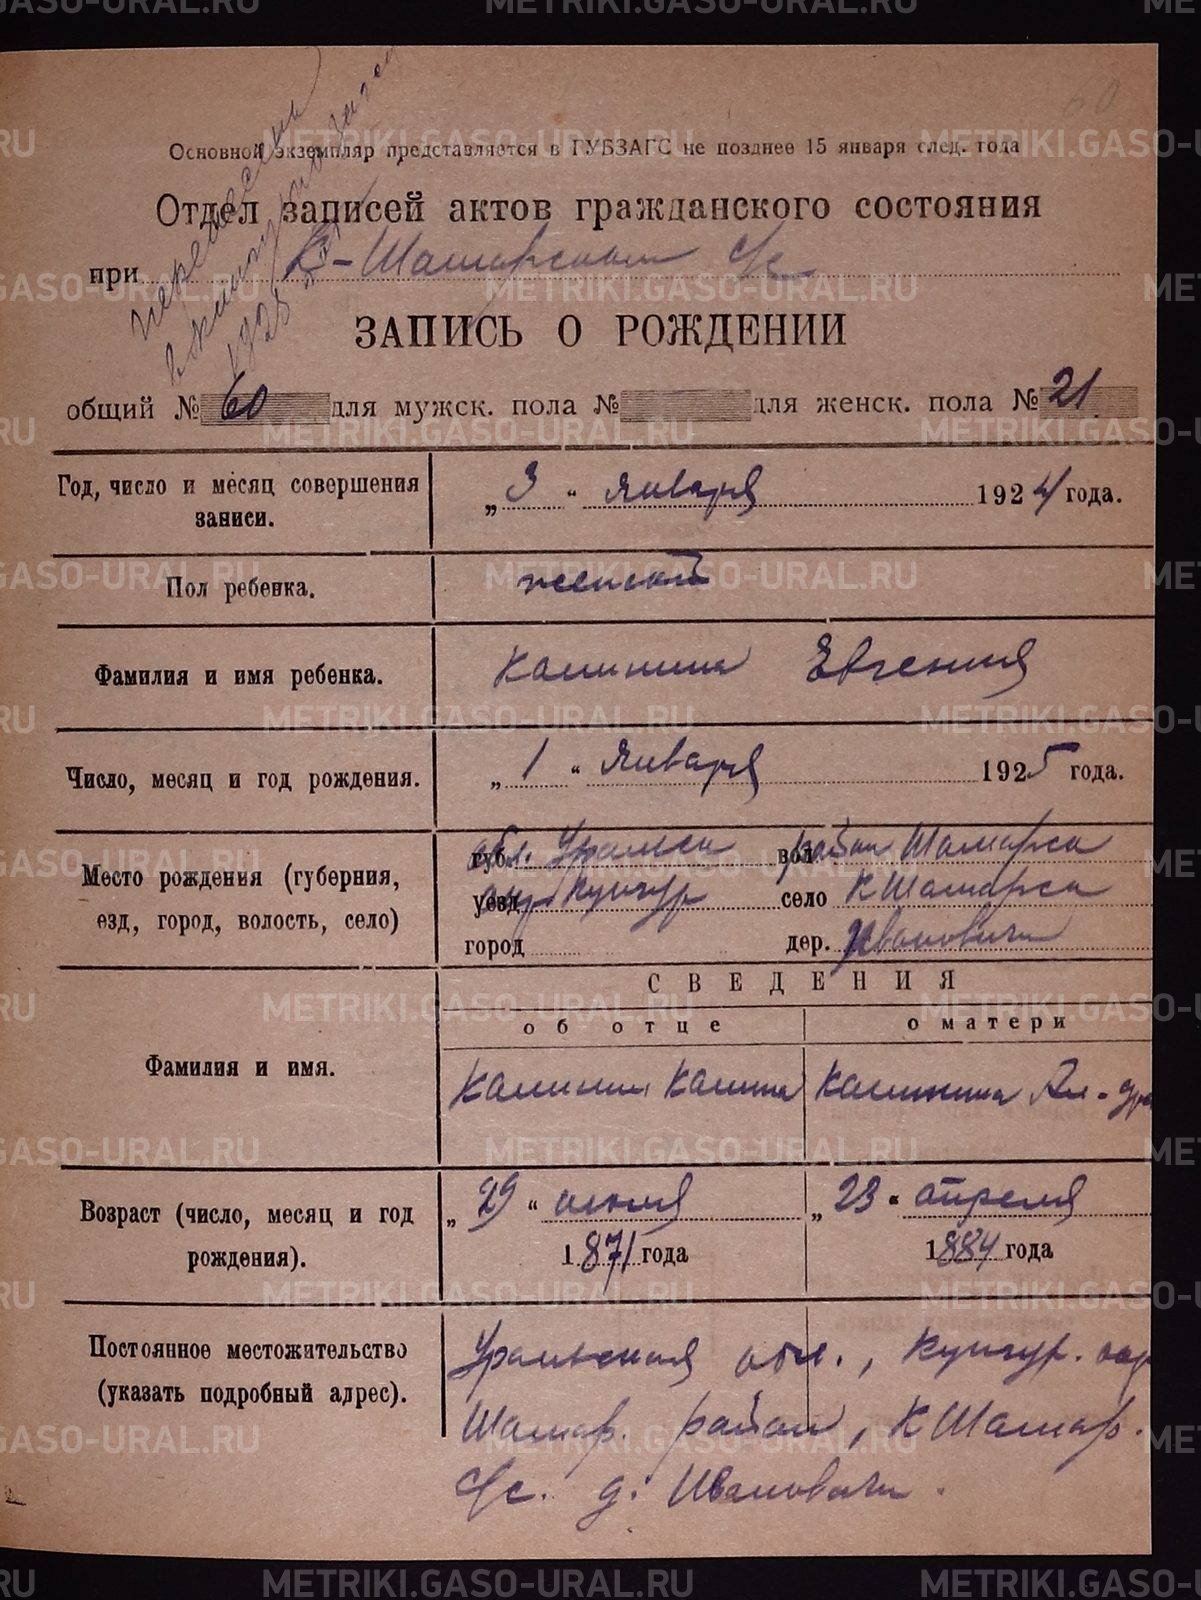 Основной экземпляр представляется в ГУБЗАГС не позднее 15 января след. года
Отдел записей актов гражданского состояния
при К-Шамарском с/с
ЗАПИСЬ О РОЖДЕНИИ
общий № 60 для мужск. пола № для женск. пола № 21
Год, число и месяц совершения записи.
„3“ января 1924 года.
Пол ребенка.
женский
Фамилия и имя ребенка.
Калинина Евгения
Число, месяц и год рождения.
„1“ января 1925 года.
Место рождения (губерния,
езд, город, волость, село)
губ. обл. Уральск вол район Шамарск
уезд окр. Кунгур село К Шамарск
город дер. Ивановичи
СВЕДЕНИЯ
об отце
о матери
Фамилия и имя.
Калинин Калина
Калинина Ал-дра
Возраст (число, месяц и год
рождения).
„29“ июля
1871 года
„23“ апреля
1884 года
Постоянное местожительство
(указать подробный адрес).
Уральская обл., Кунгур. окр
Шамар. район, К Шамар.
с/с. д. Ивановичи.
METRIKI.GASO-URAL.RU